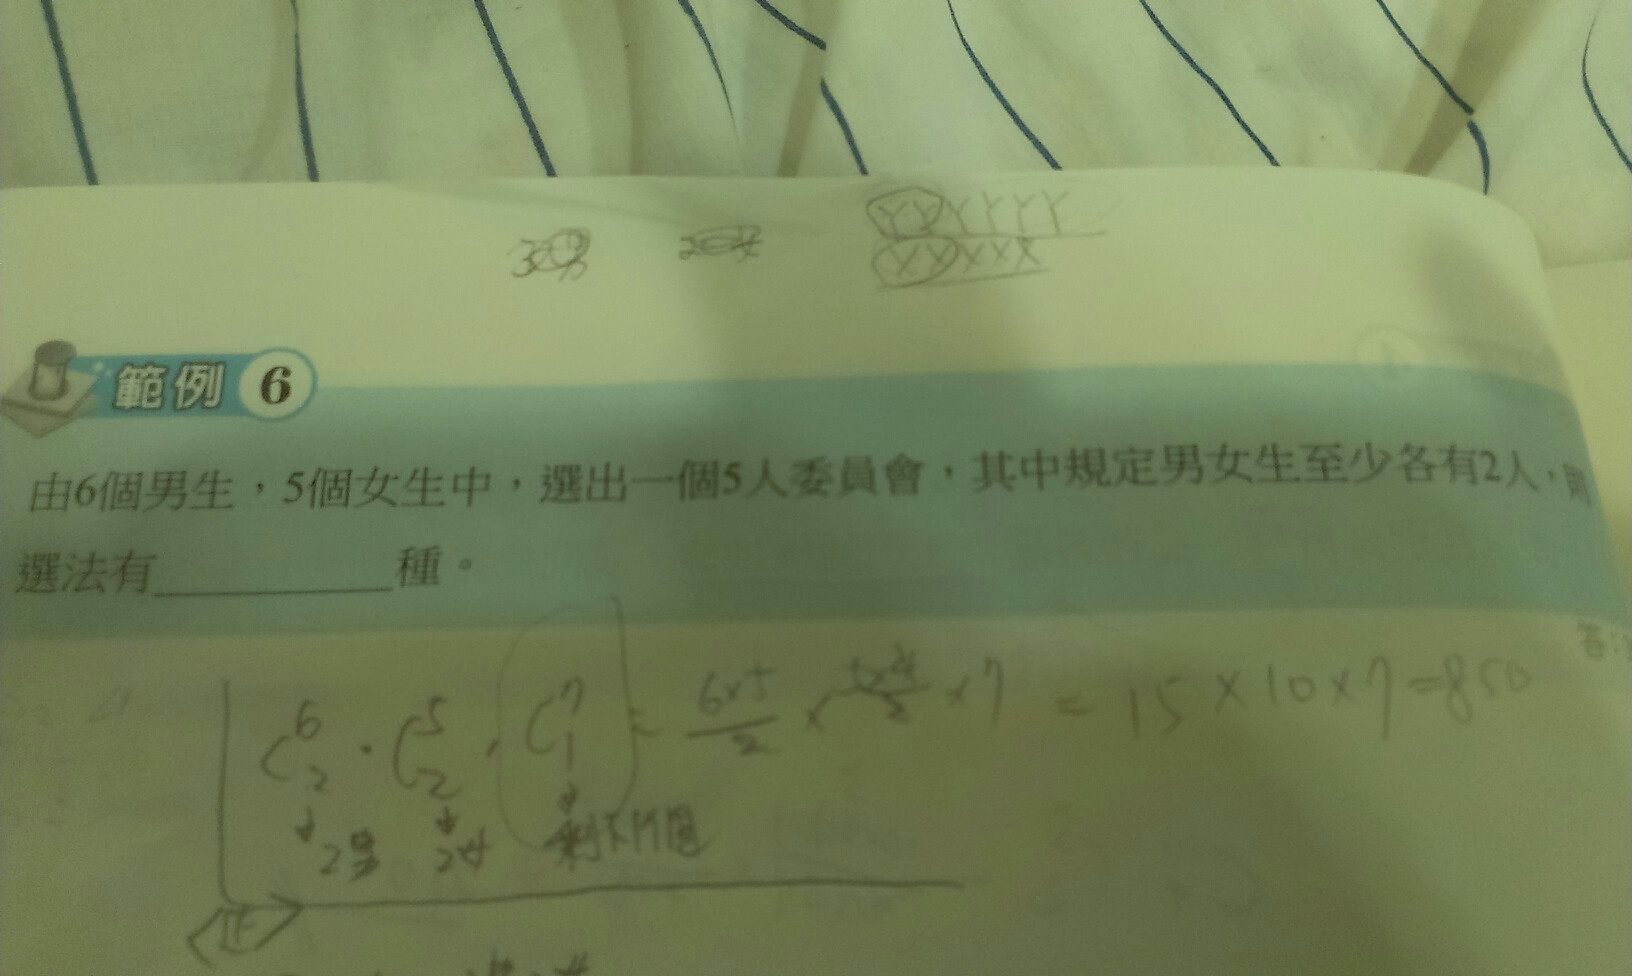 3男 2女 YYYYYY
XXXXX
範例 6
由6個男生，5個女生中，選出一個5人委員會，其中規定男女生至少各有2人，則
選法有＿＿＿＿＿種。
答：
C⁶₂ · C⁵₂ · C⁷₁ = 6×5/2 × 5×4/2 ×7 = 15×10×7=850
2男 2女 剩下1個